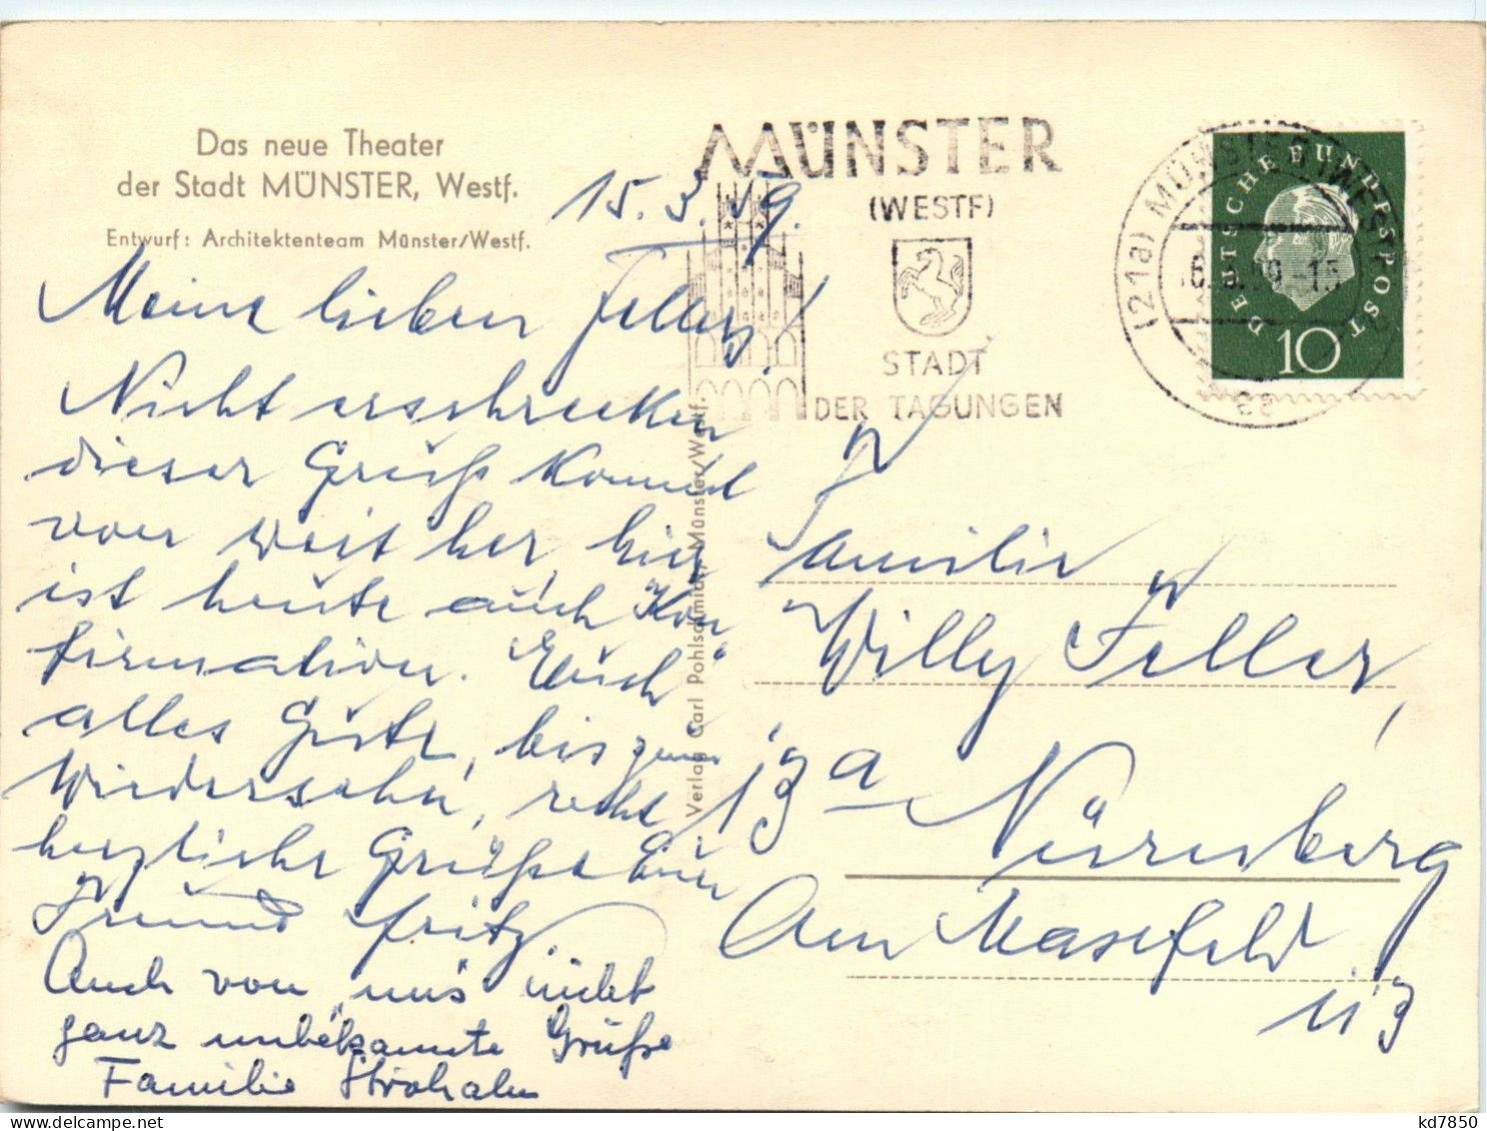 Das neue Theater
der Stadt MÜNSTER, Westf.
Entwurf: Architektenteam Münster/Westf.
15.3.59.
Meine lieben Fellers!
Nicht erschrecken
dieser Gruß kommt
von weit her, hier
ist heute auch Kon"
firmation. Euch
alles Gute, bis zum
Wiedersehn, recht
herzliche Grüße Euer
Freund Fritz
Auch von uns nicht
ganz unbekannte Grüße
Familie
Verlag Carl Pohlschmidt, Münster/Westf.
MÜNSTER
(WESTF)
STADT
DER TAGUNGEN
(21a) MÜNSTER (WESTF)
59.-15
DEUTSCHE BUNDESPOST
10
Familie
Willy Feller,
13a Nürnberg
Am Masefeld
113
kd7850